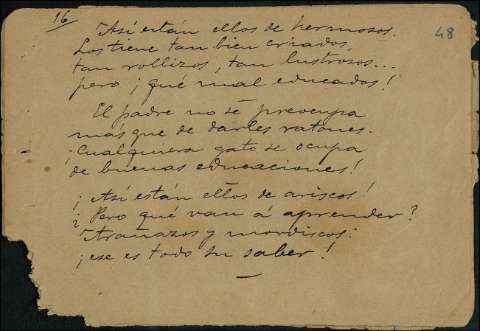 16
48
Así están ellos de hermosos.
Los tiene tan bien criados,
tan rollizos, tan lustrosos...
pero ¡qué mal educados!
El padre no se preocupa
más que de darles ratones.
¡Cualquiera gato se ocupa
de buenas educaciones!
¡Así están ellos de ariscos!
¿Pero qué van á aprender?
Arañazos y mordiscos:
¡ese es todo su saber!